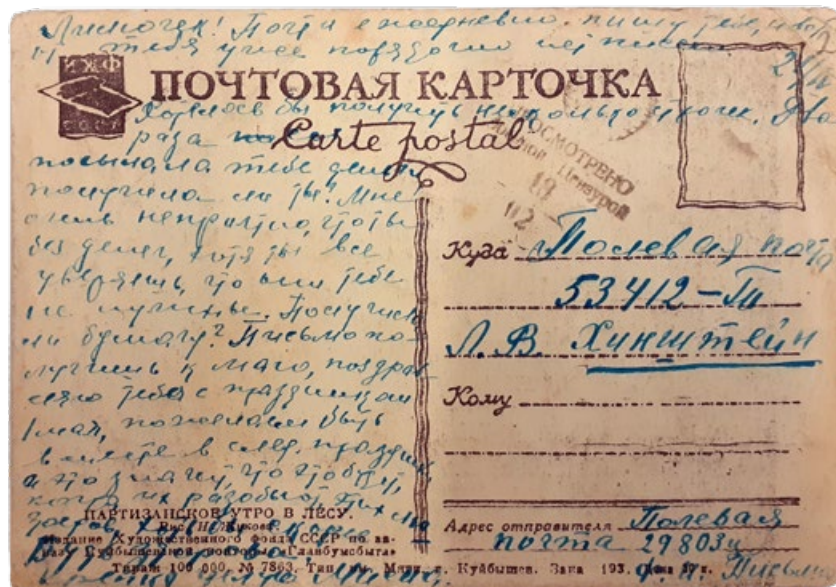 Лимочек! Почти ежедневно пишу тебе, а вот
от тебя уже порядочно нет писем
ИЖФ
СССР
ПОЧТОВАЯ КАРТОЧКА
Carte postal
Хотелось бы получить несколько строчек. Два
раза
посылала тебе деньги
получила ли ты? Мне
очень неприятно, что ты
без денег, хотя ты все
уверяешь, что они тебе
не нужны. Получила
ли бумагу? Письмо по-
лучишь к маю, поздрав
ляю тебя с праздником
1 мая, пожелаем быть
вместе в след. праздник
а это значит, что это будет,
когда их разобьют
ПРОСМОТРЕНО
Военной Цензурой
19
02
Куда Полевая почта
53412-П
Л. В. Хинштейн
Кому
Адрес отправителя Полевая
почта 29803
ПАРТИЗАНСКОЕ УТРО В ЛЕСУ.
Рис. Н. Жукова
Издание Художественного фонда СССР по за-
казу Куйбышевской конторы „Главбумсбыта“
Тираж 100 000. № 7863. Тип. им. Мяги, г. Куйбышев. Заказ 193. Цена 20 к.
Крепко целую